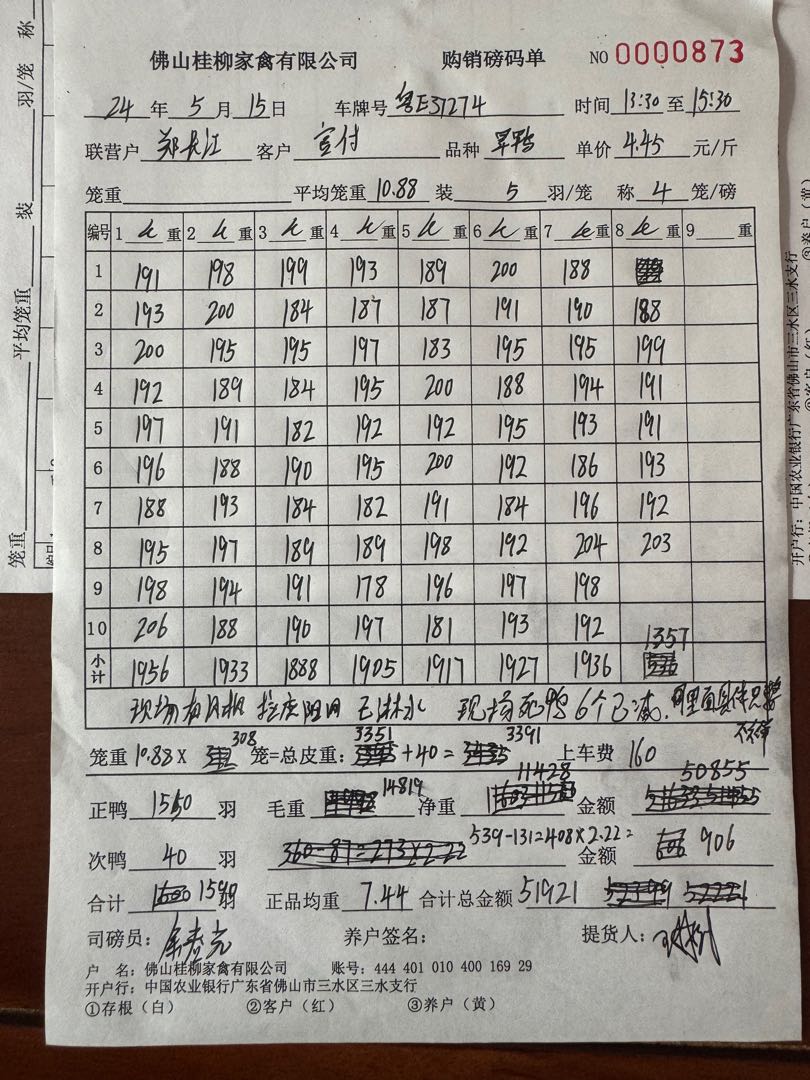 佛山桂柳家禽有限公司 购销磅码单 NO 0000873
24 年 5 月 15 日 车牌号 粤E31274 时间 13:30 至 15:30
联营户 郑长江 客户 宣付 品种 旱鸭 单价 4.45 元/斤
笼重 平均笼重 10.88 装 5 羽/笼 称 4 笼/磅
编号 1 重 2 重 3 重 4 重 5 重 6 重 7 重 8 重 9 重
1 191 198 199 193 189 200 188
2 193 200 184 187 187 191 190 188
3 200 195 195 197 183 195 195 199
4 192 189 184 195 200 188 194 191
5 197 191 182 192 192 195 193 191
6 196 188 190 195 200 192 186 193
7 188 193 184 182 191 184 196 192
8 195 197 189 189 198 192 204 203
9 198 194 191 178 196 197 198
10 206 188 190 197 181 193 192
小计 1956 1933 1888 1905 1917 1927 1936 1357
现场有风机 拉皮阻旧 已淋水 现场死鸭6个已减
笼重 10.88 × 308 笼=总皮重: 3351 + 40 = 3391 上车费 160
正鸭 1550 羽 毛重 14819 净重 11428 金额 50855
次鸭 40 羽 360-87=273×2.22 539-131=408×2.22= 金额 906
合计 1590 羽 正品均重 7.44 合计总金额 51921
司磅员: 养户签名: 提货人:
户 名: 佛山桂柳家禽有限公司 账号: 444 401 010 400 169 29
开户行: 中国农业银行广东省佛山市三水区三水支行
①存根(白) ②客户(红) ③养户(黄)
笼重 平均笼重 装 羽/笼 称
开户行: 中国农业银行广东省佛山市三水区三水支行